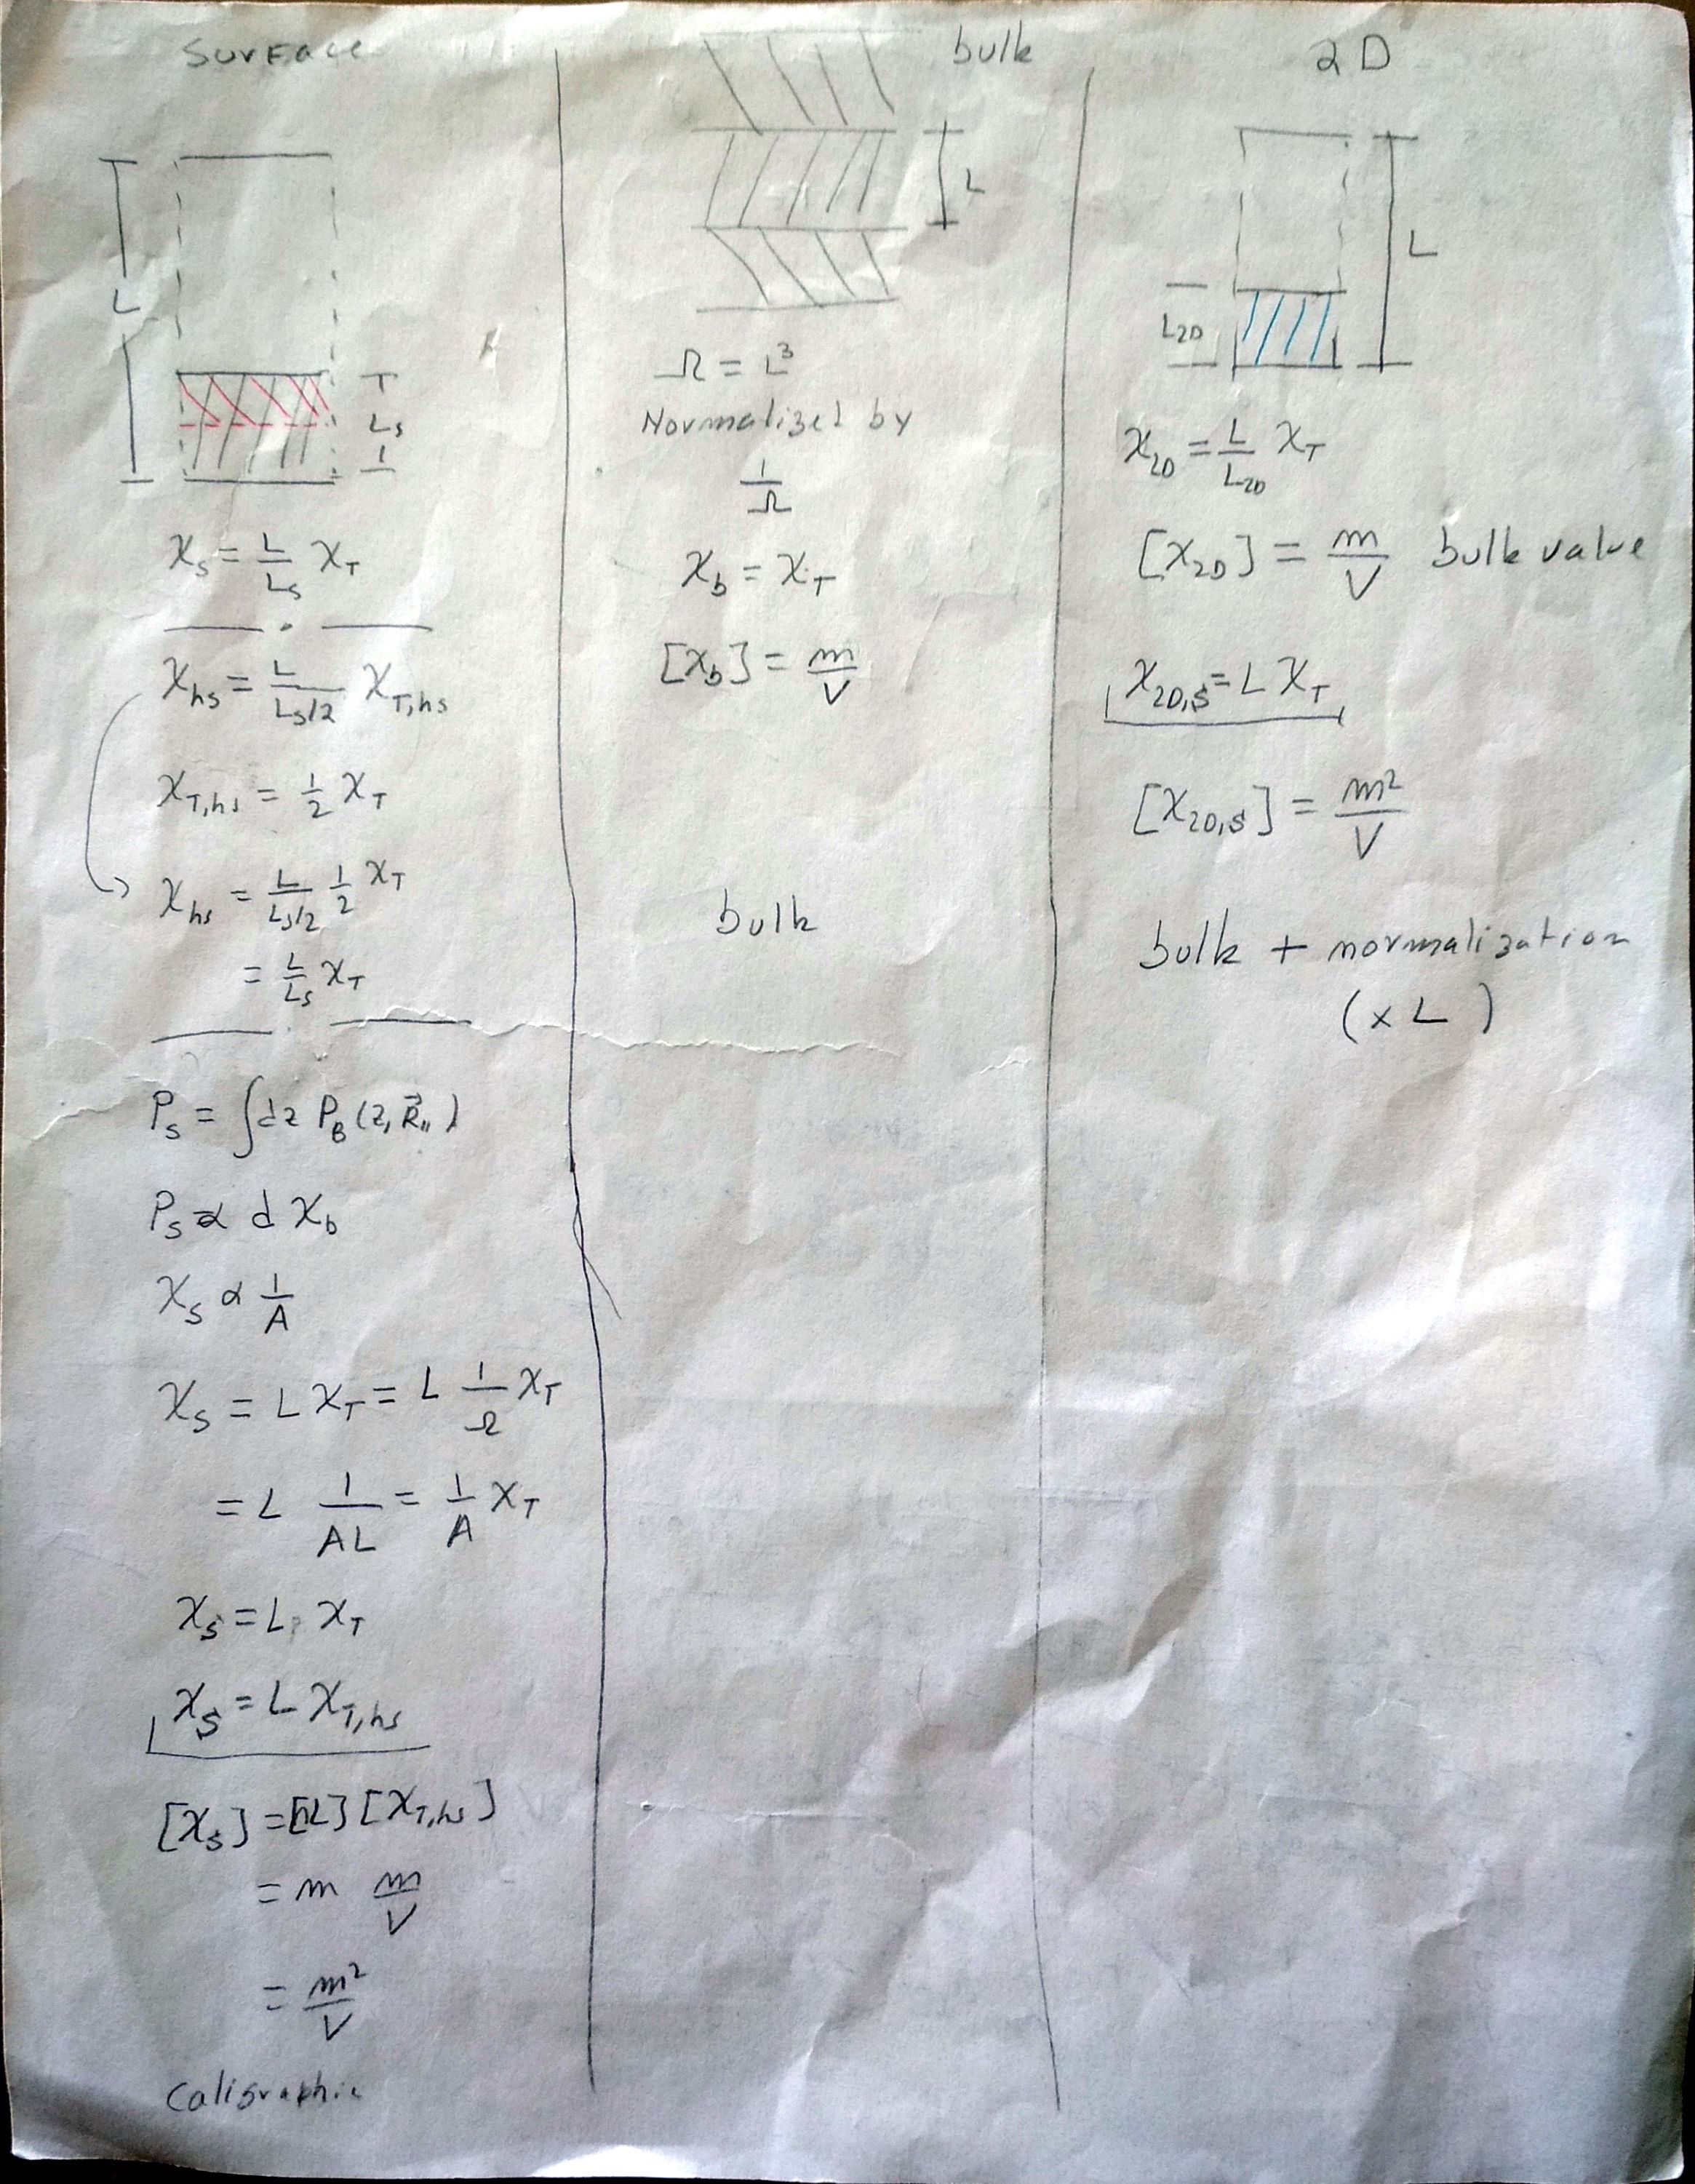 Surface
L
T
Ls
χ_s = L/L_s χ_T
χ_hs = L/(L_s/2) χ_T,hs
χ_T,hs = 1/2 χ_T
χ_hs = L/(L_s/2) 1/2 χ_T
= L/L_s χ_T
P_s = ∫dz P_B(z, R⃗_∥)
P_s ∝ d χ_b
χ_s ∝ 1/A
χ_s = L χ_T = L 1/Ω χ_T
= L 1/(AL) = 1/A χ_T
χ_s = L χ_T
χ_s = L χ_T,hs
[χ_s] = [L] [χ_T,hs]
= m m/V
= m²/V
Caligraphic
bulk
L
Ω = L³
Normalized by
1/Ω
χ_b = χ_T
[χ_b] = m/V
bulk
2D
L
L_2D
χ_2D = L/L_2D χ_T
[χ_2D] = m/V bulk value
χ_2D,s = L χ_T
[χ_2D,s] = m²/V
bulk + normalization
(× L)